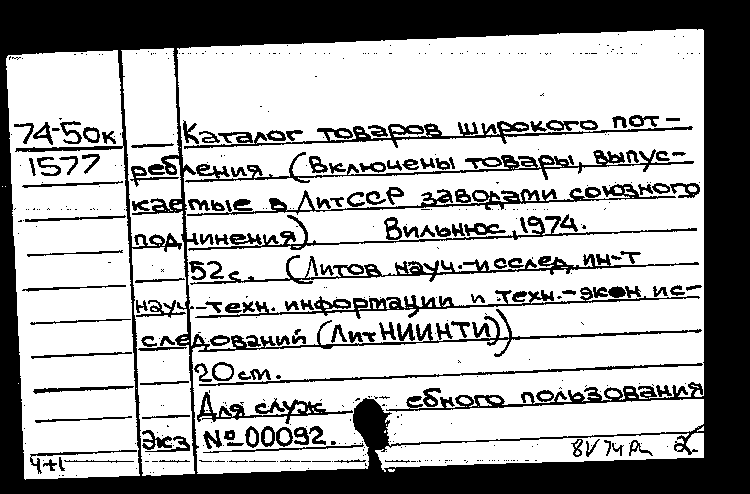 74-50к Каталог товаров широкого пот-
1577 ребления. (Включены товары, выпус-
каемые в ЛитССР заводами союзного
подчинения). Вильнюс, 1974.
52с. (Литов. науч.-исслед. ин-т
науч.-техн. информации и техн.-экон. ис-
следований (ЛитНИИНТИ))
20 см.
Для служ ебного пользования
Экз №00092.
4+1